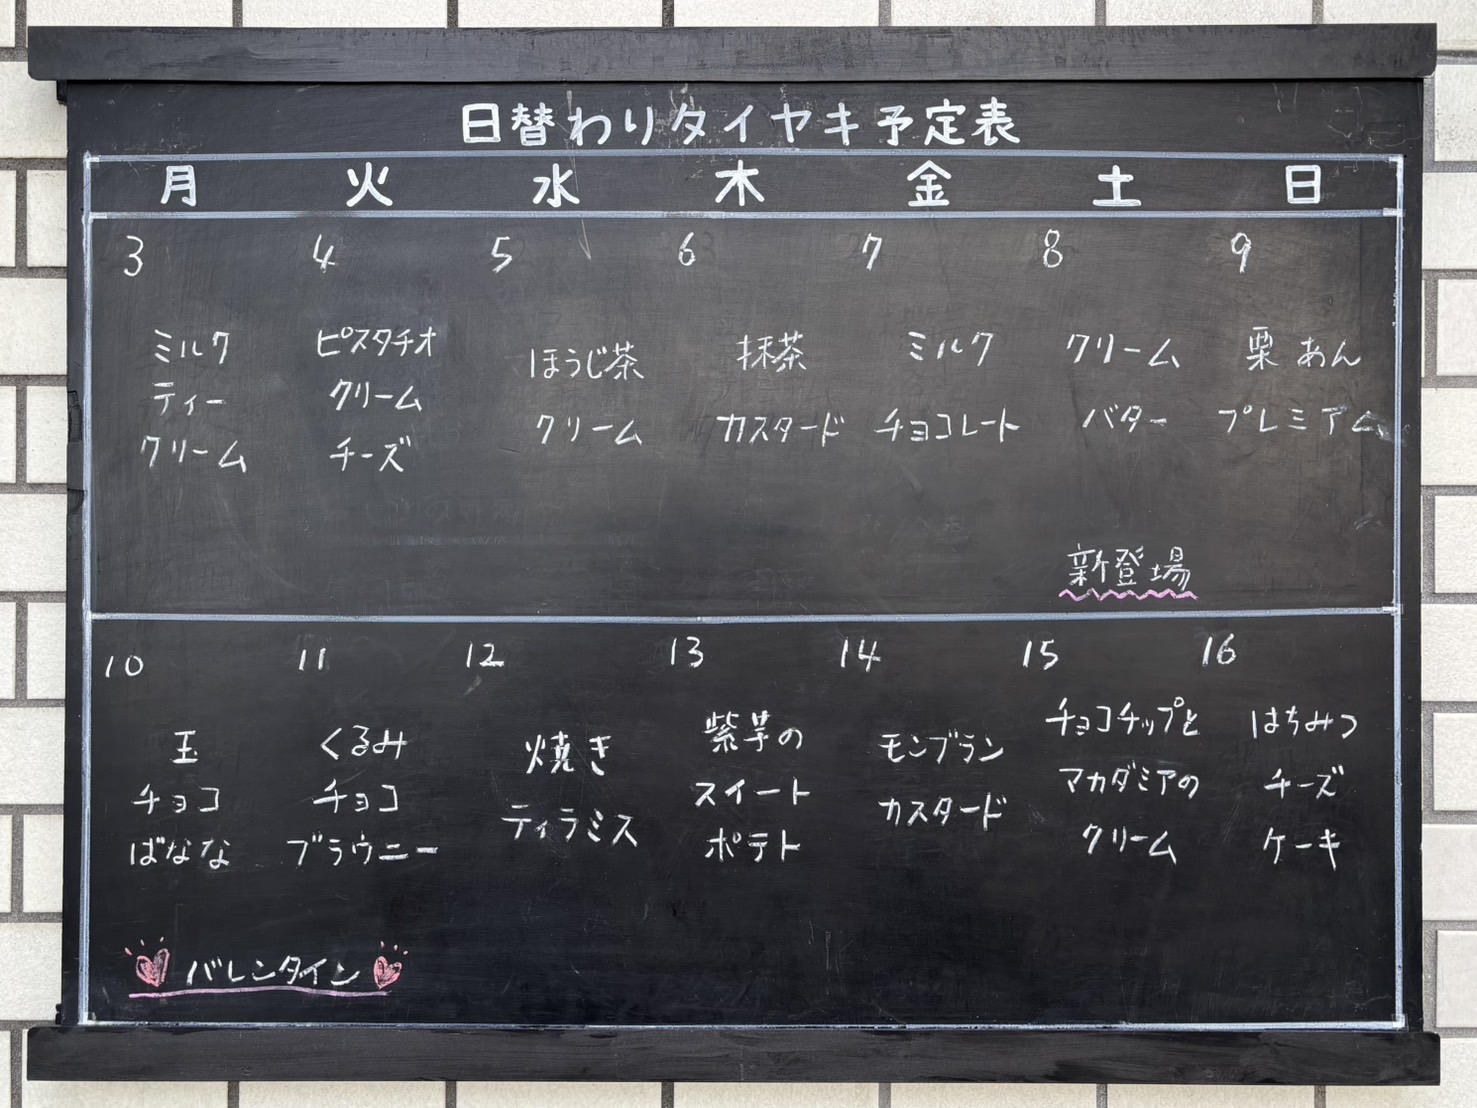 日替わりタイヤキ予定表
月 火 水 木 金 土 日
3
ミルク
ティー
クリーム
4
ピスタチオ
クリーム
チーズ
5
ほうじ茶
クリーム
6
抹茶
カスタード
7
ミルク
チョコレート
8
クリーム
バター
新登場
9
栗あん
プレミアム
10
玉
チョコ
ばなな
バレンタイン
11
くるみ
チョコ
ブラウニー
12
焼き
ティラミス
13
紫芋の
スイート
ポテト
14
モンブラン
カスタード
15
チョコチップと
マカダミアの
クリーム
16
はちみつ
チーズ
ケーキ